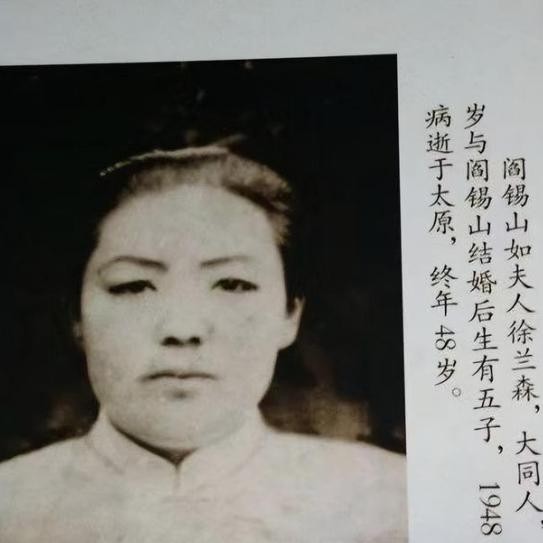 阎锡山如夫人徐兰森，大同人，
岁与阎锡山结婚后生有五子，1948
病逝于太原，终年48岁。